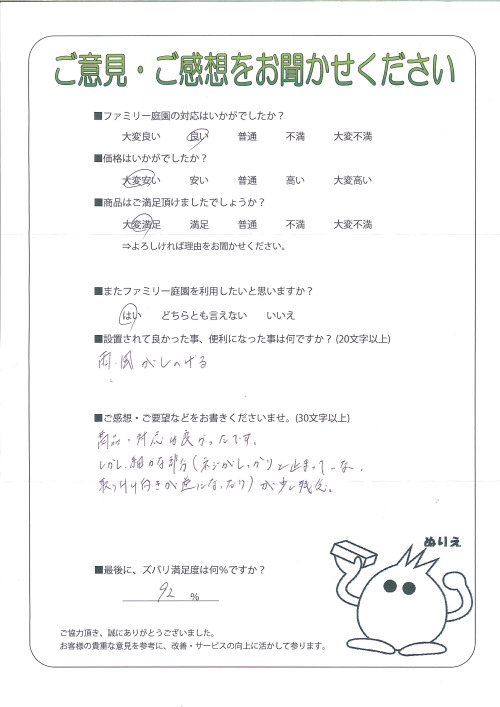 ご意見・ご感想をお聞かせください
■ファミリー庭園の対応はいかがでしたか？
大変良い 良い 普通 不満 大変不満
■価格はいかがでしたか？
大変安い 安い 普通 高い 大変高い
■商品はご満足頂けましたでしょうか？
大変満足 満足 普通 不満 大変不満
⇒よろしければ理由をお聞かせください。
■またファミリー庭園を利用したいと思いますか？
はい どちらとも言えない いいえ
■設置されて良かった事、便利になった事は何ですか？(20文字以上)
雨・風がしのげる
■ご感想・ご要望などをお書きくださいませ。(30文字以上)
商品・対応は良かったです。
しかし、細かな部分(ネジがしっかりと止まって
取り付け向きが逆になったり)が少し残念。
ぬりえ
■最後に、ズバリ満足度は何%ですか？
92 %
ご協力頂き、誠にありがとうございました。
お客様の貴重な意見を参考に、改善・サービスの向上に活かして参ります。